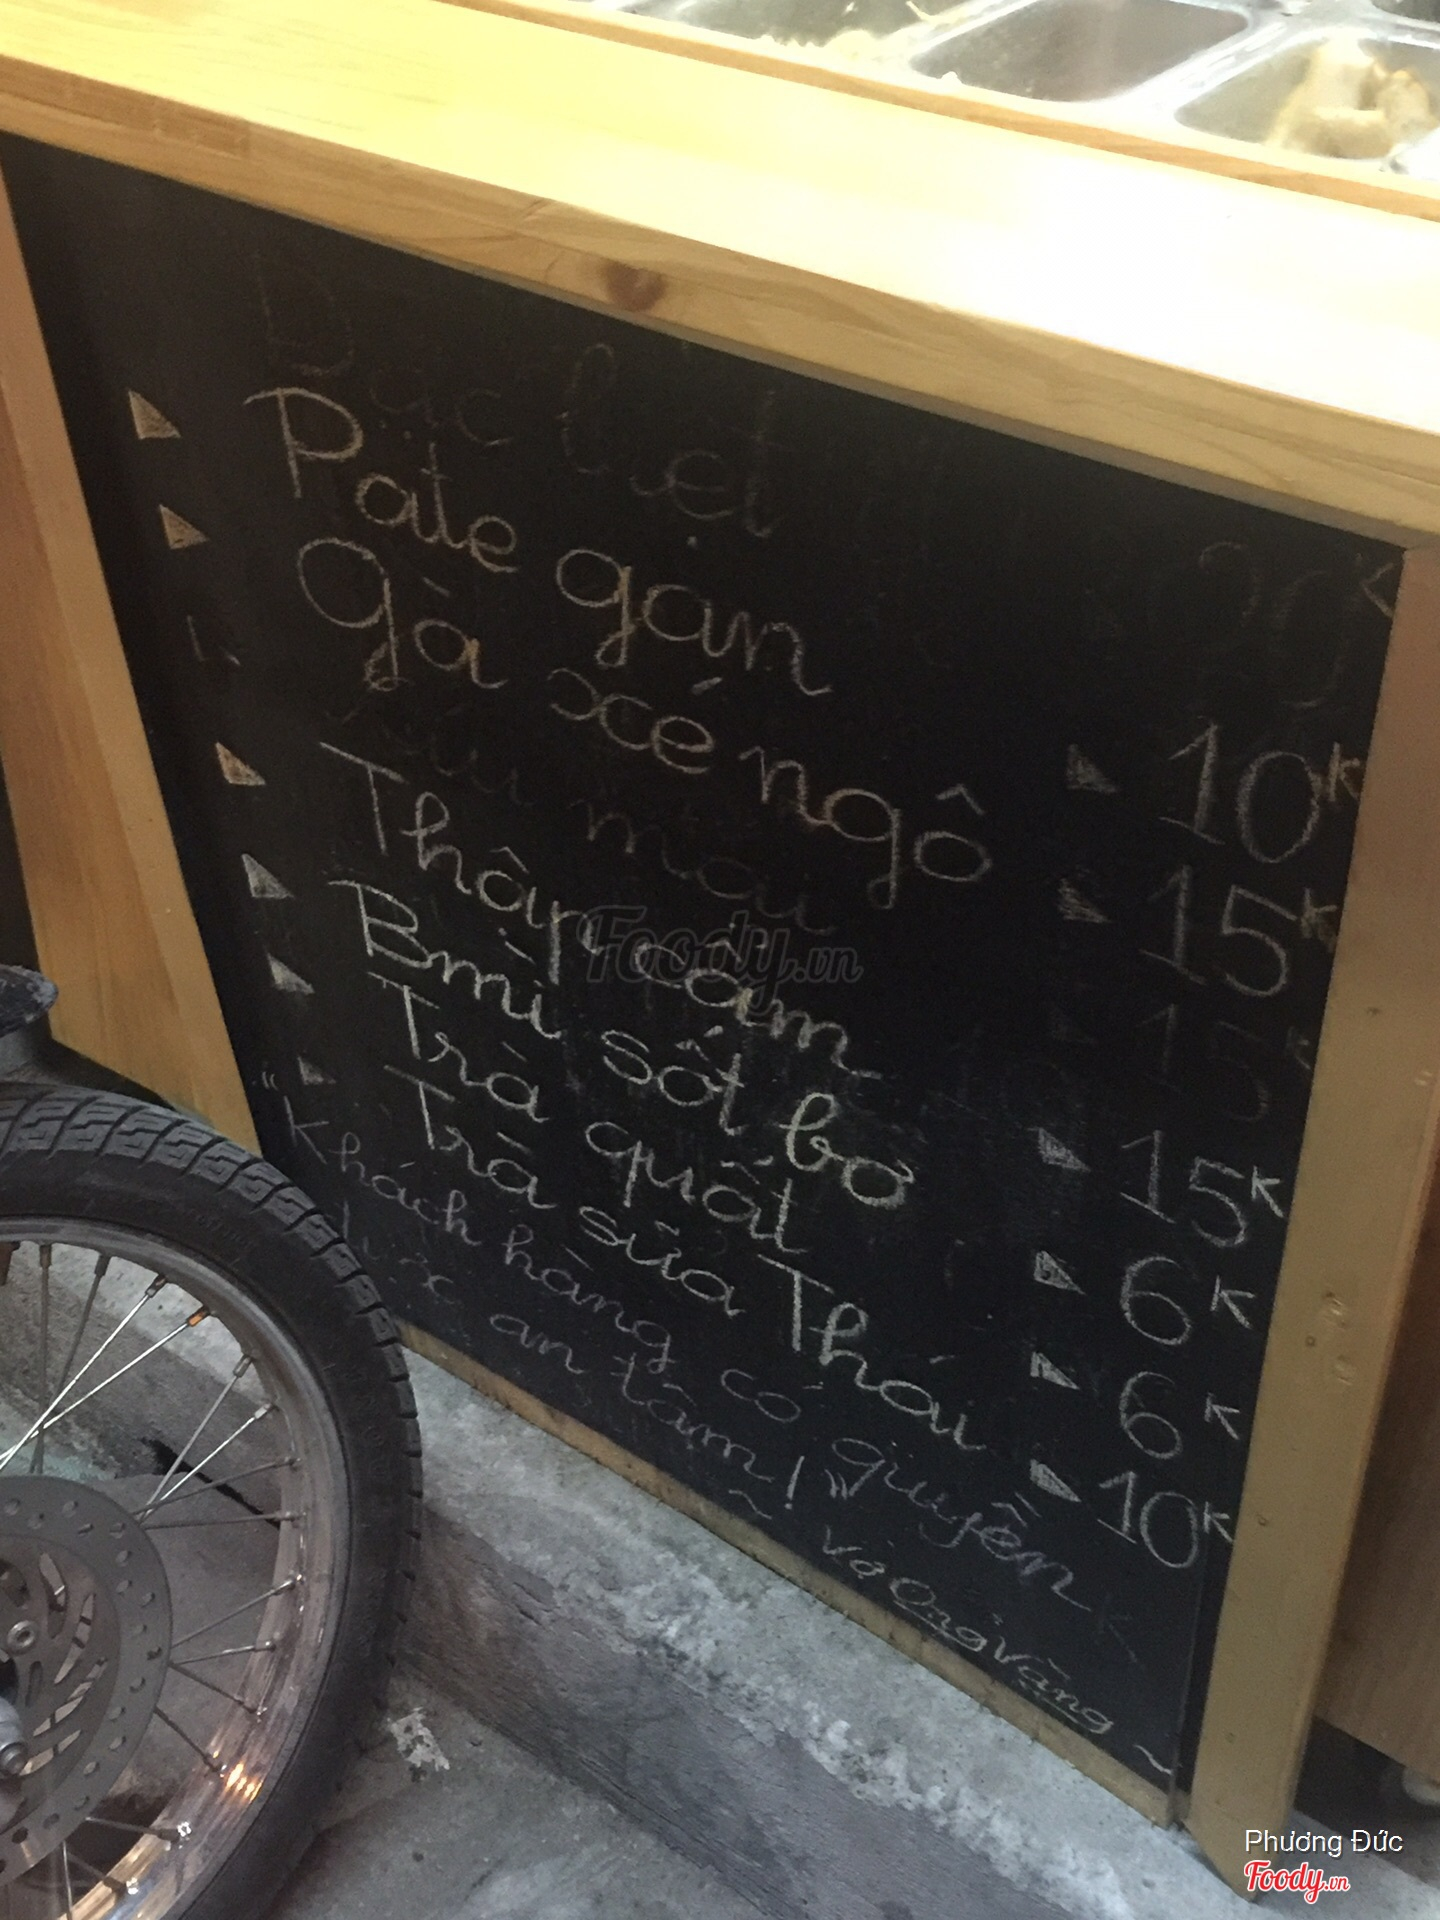 Đặc biệt 20K
Pate gan 10K
Gà xé ngô 15K
Xíu mại 15K
Thập cẩm 15K
Bmì sốt bơ 6K
Trà quất 6K
Trà sữa Thái 10K
"Khách hàng có quyền
được an tâm!"
~ Vịt Ong Vàng ~
Foody.vn
Phương Đức
Foody.vn